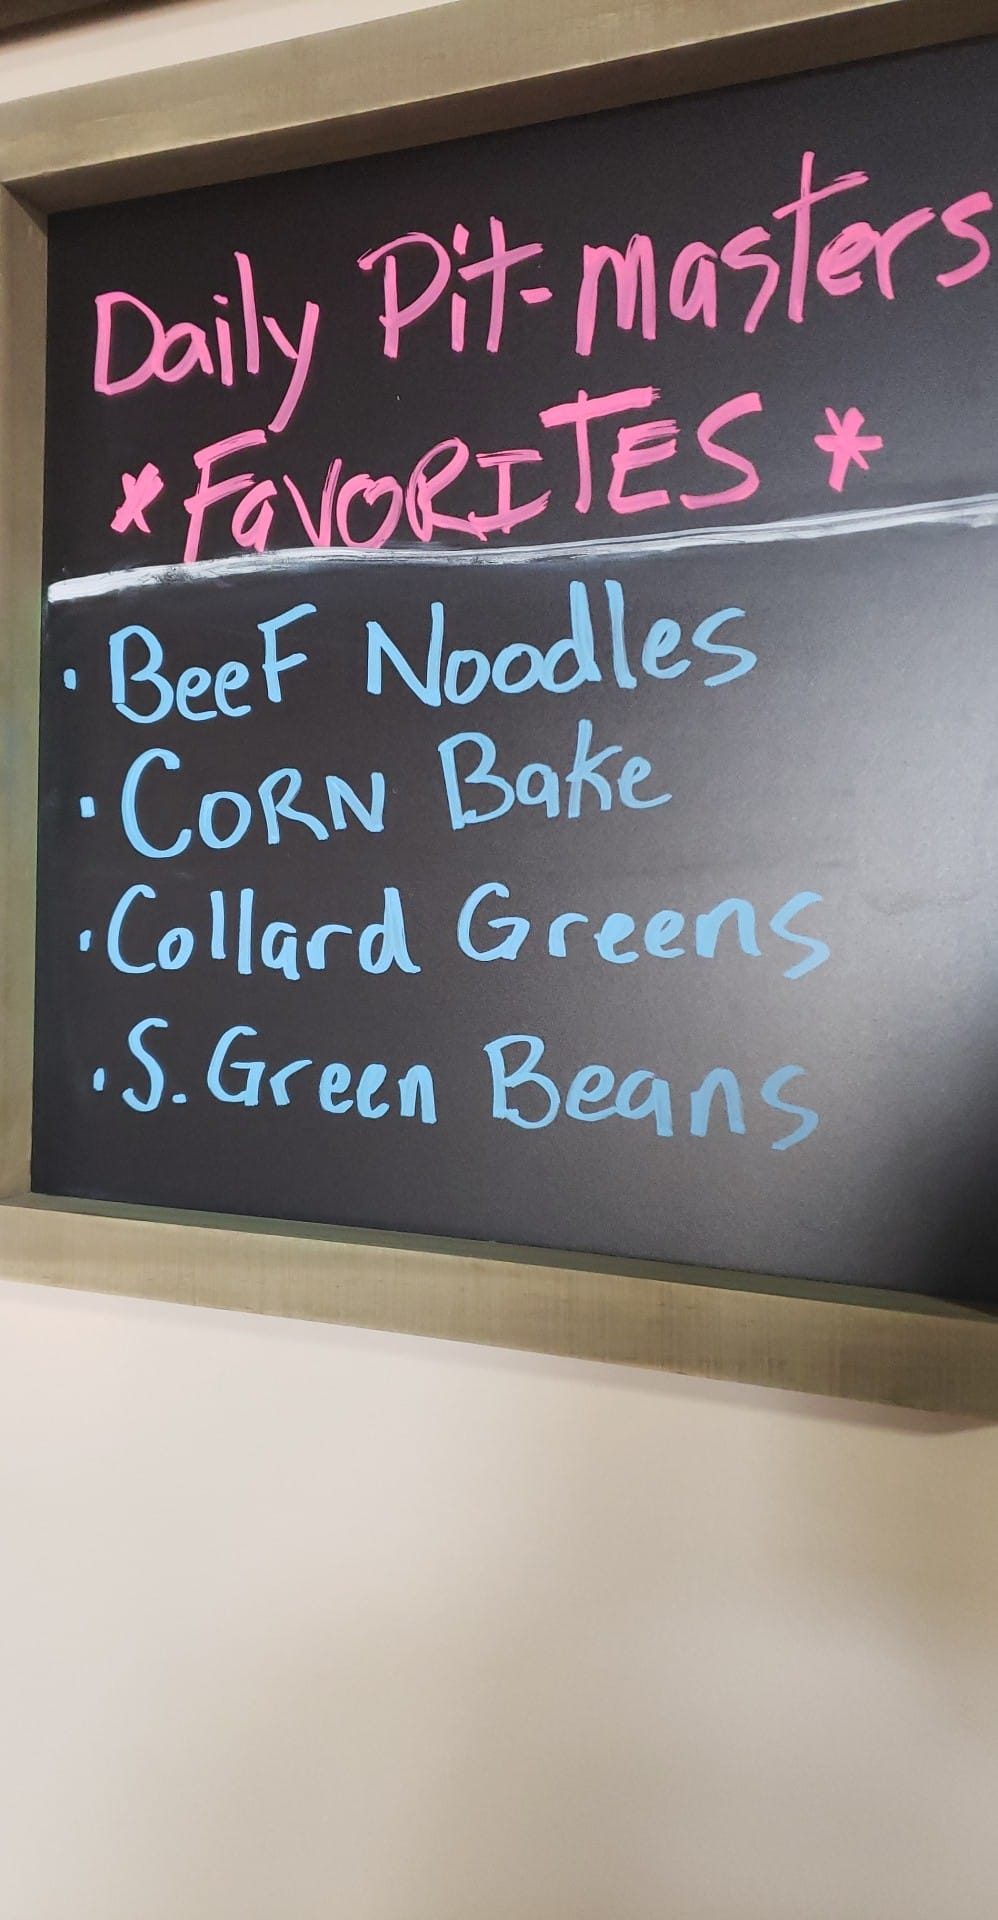 Daily Pit-masters
*FaVORITES*
· BeeF Noodles
· CORN Bake
· Collard Greens
· S. Green Beans